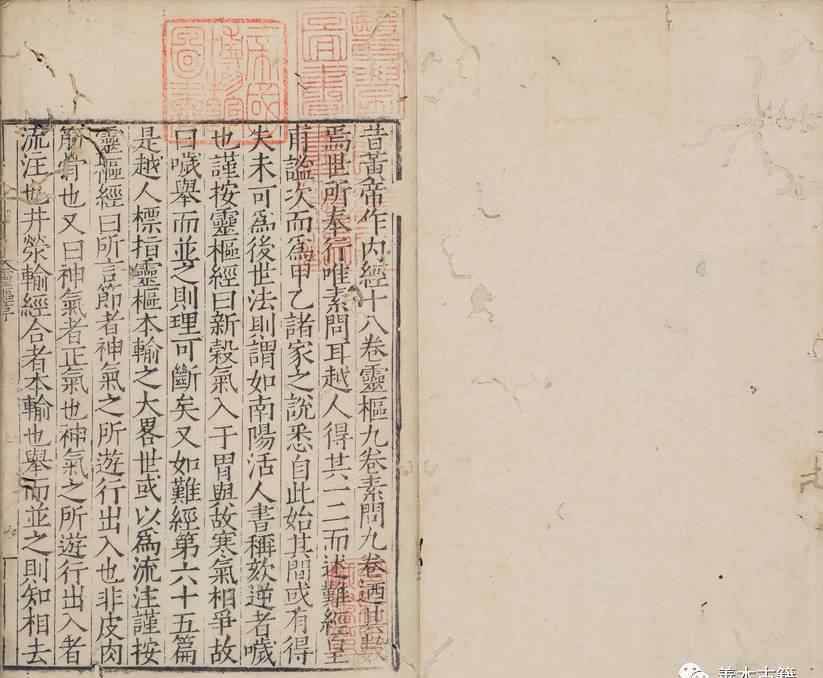 昔黃帝作內經十八卷靈樞九卷素問九卷迺其數
焉世所奉行唯素問耳越人得其一二而述難經皇
甫謐次而為甲乙諸家之說悉自此始其間或有得
失未可為後世法則謂如南陽活人書稱欬逆者噦
也謹按靈樞經曰新穀氣入于胃與故寒氣相爭故
曰噦舉而並之則理可斷矣又如難經第六十五篇
是越人標指靈樞本輸之大畧世或以為流注謹按
靈樞經曰所言節者神氣之所遊行出入也非皮肉
筋骨也又曰神氣者正氣也神氣之所遊行出入者
流注也井滎輸經合者本輸也舉而並之則知相去
善本古籍